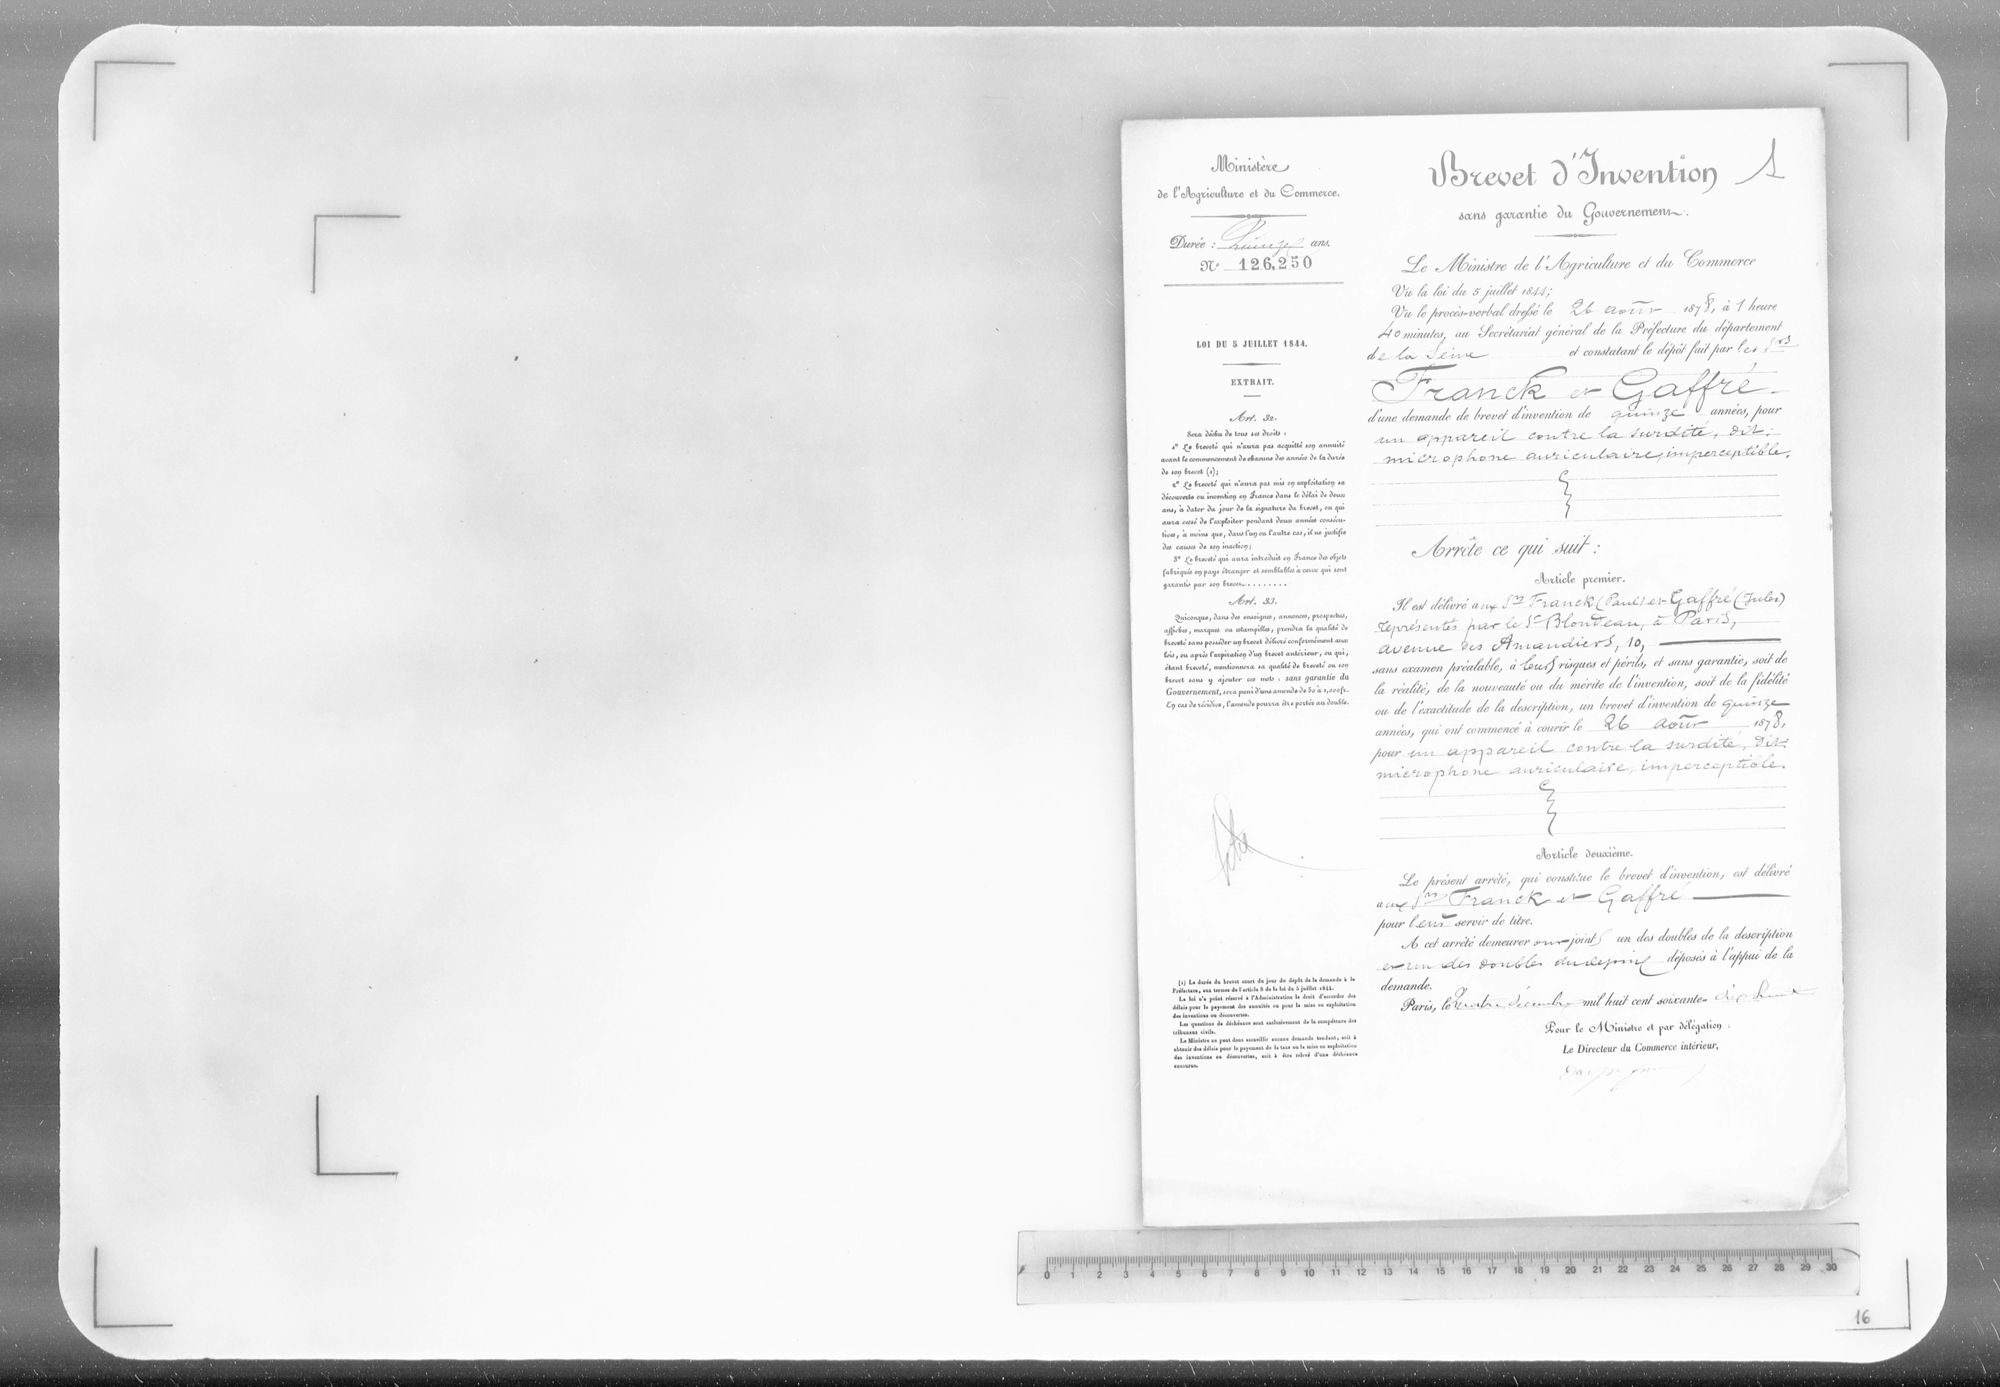 Ministère
de l'Agriculture et du Commerce.
Durée : Quinze ans.
N° 126,250
LOI DU 5 JUILLET 1844.
EXTRAIT.
Art. 32.
Sera déchu de tous ses droits :
1° Le breveté qui n'aura pas acquitté son annuité
avant le commencement de chacune des années de la durée
de son brevet (1);
2° Le breveté qui n'aura pas mis en exploitation sa
découverte ou invention en France dans le délai de deux
ans, à dater du jour de la signature du brevet, ou qui
aura cessé de l'exploiter pendant deux années consécu-
tives, à moins que, dans l'un ou l'autre cas, il ne justifie
des causes de son inaction;
3° Le breveté qui aura introduit en France des objets
fabriqués en pays étranger et semblables à ceux qui sont
garantis par son brevet.........
Art. 33.
Quiconque, dans des enseignes, annonces, prospectus,
affiches, marques ou estampilles, prendra la qualité de
breveté sans posséder un brevet délivré conformément aux
lois, ou après l'expiration d'un brevet antérieur, ou qui,
étant breveté, mentionnera sa qualité de breveté ou son
brevet sans y ajouter ces mots : sans garantie du
Gouvernement, sera puni d'une amende de 50 à 1,000 fr.
En cas de récidive, l'amende pourra être portée au double.
(1) La durée du brevet court du jour du dépôt de la demande à la
Préfecture, aux termes de l'article 8 de la loi du 5 juillet 1844.
La loi n'a point réservé à l'Administration le droit d'accorder des
délais pour le payement des annuités ou pour la mise en exploitation
des inventions ou découvertes.
Les questions de déchéance sont exclusivement de la compétence des
tribunaux civils.
Le Ministre ne peut donc accueillir aucune demande tendant, soit à
obtenir des délais pour le payement de la taxe ou la mise en exploitation
des inventions ou découvertes, soit à être relevé d'une déchéance
encourue.
Brevet d'Invention 1
sans garantie du Gouvernement.
Le Ministre de l'Agriculture et du Commerce
Vu la loi du 5 juillet 1844;
Vu le procès-verbal dressé le 26 août 1878, à 1 heure
40 minutes, au Secrétariat général de la Préfecture du département
de la Seine et constatant le dépôt fait par les Srs
Franck et Gaffré
d'une demande de brevet d'invention de quinze années, pour
un appareil contre la surdité, dit:
microphone auriculaire, imperceptible.
Arrête ce qui suit :
Article premier.
Il est délivré aux Srs Franck (Paul) et Gaffré (Jules)
représentés par le Sr Blondeau, à Paris,
avenue des Amandiers, 10,
sans examen préalable, à leurs risques et périls, et sans garantie, soit de
la réalité, de la nouveauté ou du mérite de l'invention, soit de la fidélité
ou de l'exactitude de la description, un brevet d'invention de quinze
années, qui ont commencé à courir le 26 août 1878,
pour un appareil contre la surdité, dit:
microphone auriculaire, imperceptible.
Article deuxième.
Le présent arrêté, qui constitue le brevet d'invention, est délivré
aux Srs Franck et Gaffré
pour leur servir de titre.
A cet arrêté demeureront joints un des doubles de la description
et un des doubles du dessin déposés à l'appui de la
demande.
Paris, le quatre décembre mil huit cent soixante-dix-huit
Pour le Ministre et par délégation :
Le Directeur du Commerce intérieur,
0 1 2 3 4 5 6 7 8 9 10 11 12 13 14 15 16 17 18 19 20 21 22 23 24 25 26 27 28 29 30
16